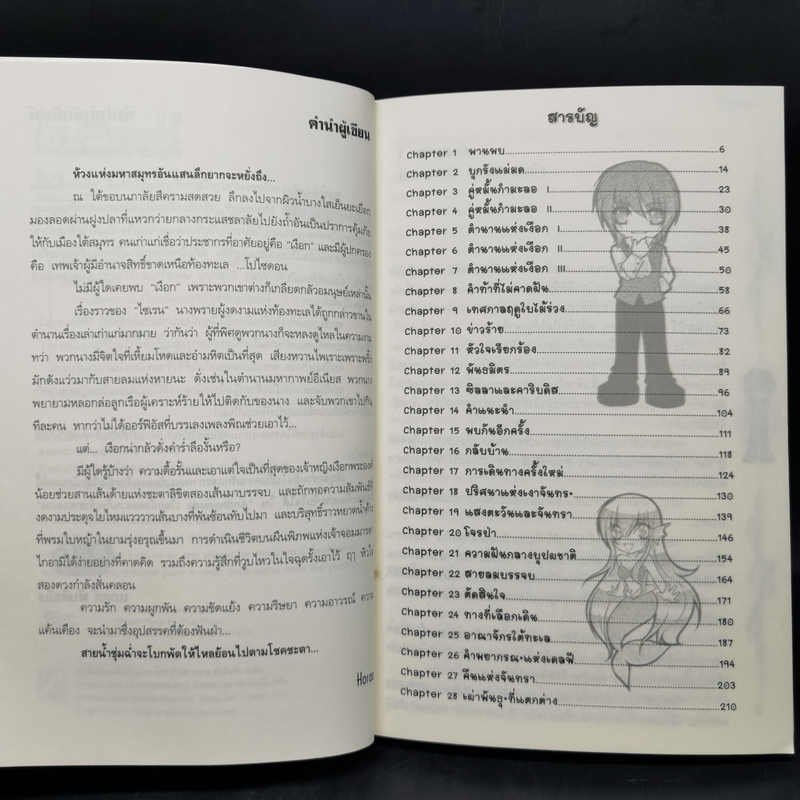 คำนำผู้เขียน
ห้วงแห่งมหาสมุทรอันแสนลึกยากจะหยั่งถึง...
ณ ใต้ขอบนภาลัยสีครามสดสวย ลึกลงไปจากผิวน้ำบางใสเย็นยะเยือก
มองลอดผ่านฝูงปลาที่แหวกว่ายกลางกระแสชลาลัยไปยังถ้ำอันเป็นปราการคุ้มภัย
ให้กับเมืองใต้สมุทร คนเก่าแก่เชื่อว่าประชากรที่อาศัยอยู่คือ “เงือก” และมีผู้ปกครอง
คือ เทพเจ้าผู้มีอำนาจสิทธิ์ขาดเหนือท้องทะเล ...โปไซดอน
ไม่มีผู้ใดเคยพบ “เงือก” เพราะพวกเขาต่างก็เกลียดกลัวมนุษย์เหล่านั้น
เรื่องราวของ “ไซเรน” นางพรายผู้งดงามแห่งท้องทะเลได้ถูกกล่าวขานใน
ตำนานเรื่องเล่าเก่าแก่มากมาย ว่ากันว่า ผู้ที่พิศดูพวกนางก็จะหลงดูไหลในความงาม
ทว่า พวกนางมีจิตใจที่เหี้ยมโหดและอำมหิตเป็นที่สุด เสียงหวานไพเราะเพราะพริ้ง
มักดังแว่วมากับสายลมแห่งหายนะ ดั่งเช่นในตำนานมหากาพย์อีเนียส พวกนาง
พยายามหลอกล่อลูกเรือผู้เคราะห์ร้ายให้ไปติดกับของนาง และจับพวกเขาไปกิน
ทีละคน หากว่าไม่ได้ออร์ฟิอัสที่บรรเลงเพลงพิณช่วยเอาไว้...
แต่... เงือกน่ากลัวดั่งคำร่ำลืองั้นหรือ?
มีผู้ใดรู้บ้างว่า ความดื้อรั้นและเอาแต่ใจเป็นที่สุดของเจ้าหญิงเงือกพระองค์
น้อยช่วยสานเส้นด้ายแห่งชะตาลิขิตสองเส้นมาบรรจบ และถักทอความสัมพันธ์ที่
งดงามประดุจใยไหมแวววาวเส้นบางที่พันซ้อนทับไปมา และบริสุทธิ์ราวหยาดน้ำค้าง
ที่พรมใบหญ้าในยามรุ่งอรุณขึ้นมา การดำเนินชีวิตบนผืนพิภพแห่งเจ้าจอมมาร
ไกอามิได้ง่ายอย่างที่คาดคิด รวมถึงความรู้สึกที่วูบไหวในใจฉุดรั้งเอาไว้ ฤๅ หัวใจ
สองดวงกำลังสั่นคลอน
ความรัก ความผูกพัน ความขัดแย้ง ความริษยา ความอาวรณ์
แค้นเคือง จะนำมาซึ่งอุปสรรคที่ต้องฟันฝ่า...
สายน้ำชุ่มฉ่ำจะโบกพัดให้ไหลย้อนไปตามโชคชะตา...
สารบัญ
Chapter 1 พานพบ...6
Chapter 2 บุกรังแม่มด...14
Chapter 3 คู่หมั้นกำมะลอ I...23
Chapter 4 คู่หมั้นกำมะลอ II...30
Chapter 5 ตำนานแห่งเงือก I...38
Chapter 6 ตำนานแห่งเงือก II...45
Chapter 7 ตำนานแห่งเงือก III...50
Chapter 8 คำท้าที่ไม่คาดฝัน...58
Chapter 9 เทศกาลฤดูใบไม้ร่วง...66
Chapter 10 ข่าวร้าย...73
Chapter 11 หัวใจเรียกร้อง...82
Chapter 12 พันธมิตร...89
Chapter 13 ซิลลาและคาริบดิส...96
Chapter 14 คำแนะนำ...104
Chapter 15 พบกันอีกครั้ง...111
Chapter 16 กลับบ้าน...118
Chapter 17 การเดินทางครั้งใหม่...124
Chapter 18 ปริศนาแห่งเงาจันทร์...130
Chapter 19 แสงตะวันและจันทรา...139
Chapter 20 โจรป่า...146
Chapter 21 ความฝันกลางบุปผชาติ...154
Chapter 22 สายลมบรรจบ...164
Chapter 23 ตัดสินใจ...171
Chapter 24 ทางที่เลือกเดิน...180
Chapter 25 อาณาจักรใต้ทะเล...187
Chapter 26 คำพยากรณ์แห่งเดลฟี...194
Chapter 27 คืนแห่งจันทรา...203
Chapter 28 เผ่าพันธุ์ที่แตกต่าง...210